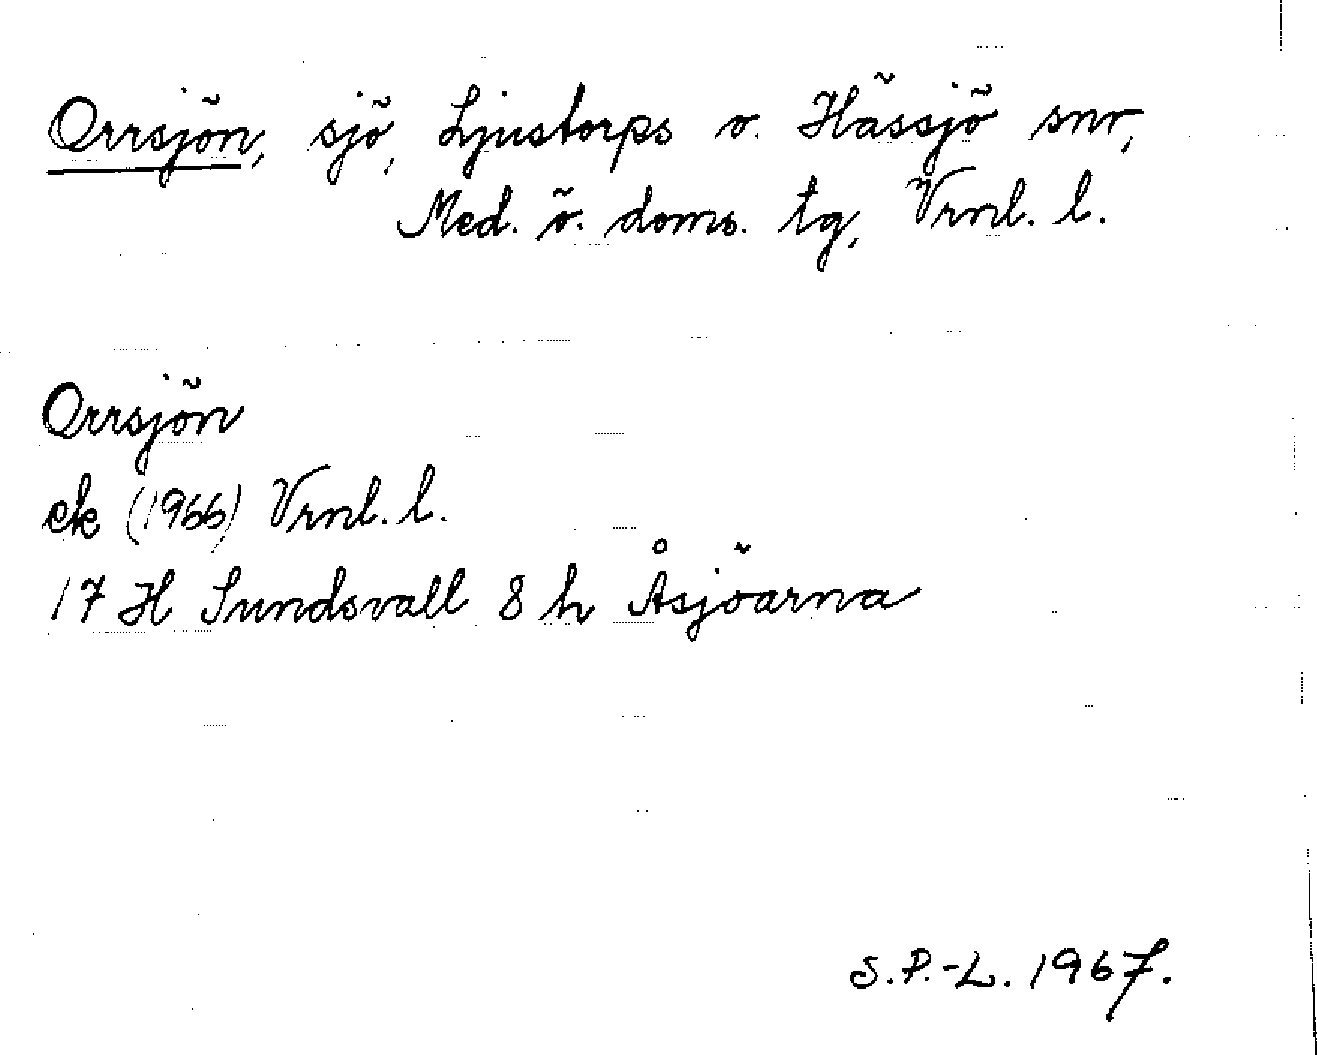 Orrsjön, sjö, Ljustorps o. Hässjö snr,
Med. ö. doms. tg, Vrnl. l.
Orrsjön
ek (1966) Vrnl. l.
17 H Sundsvall 8 h Åsjöarna
S.P.-L. 1967.